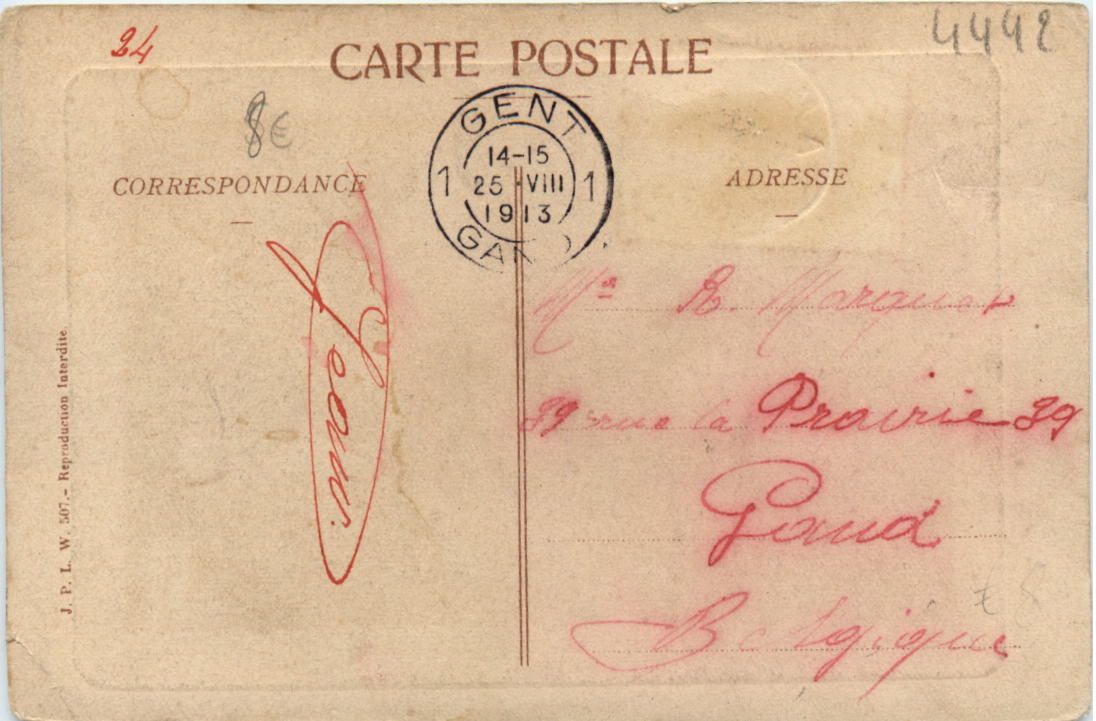 24
CARTE POSTALE
4442
8€
GENT
14-15
1 25 VIII 1
1913
GAND
CORRESPONDANCE
ADRESSE
Jean.
J. P. L. W. 507.- Reproduction Interdite
R.
39 rue la Prairie 39
Gand
Belgique